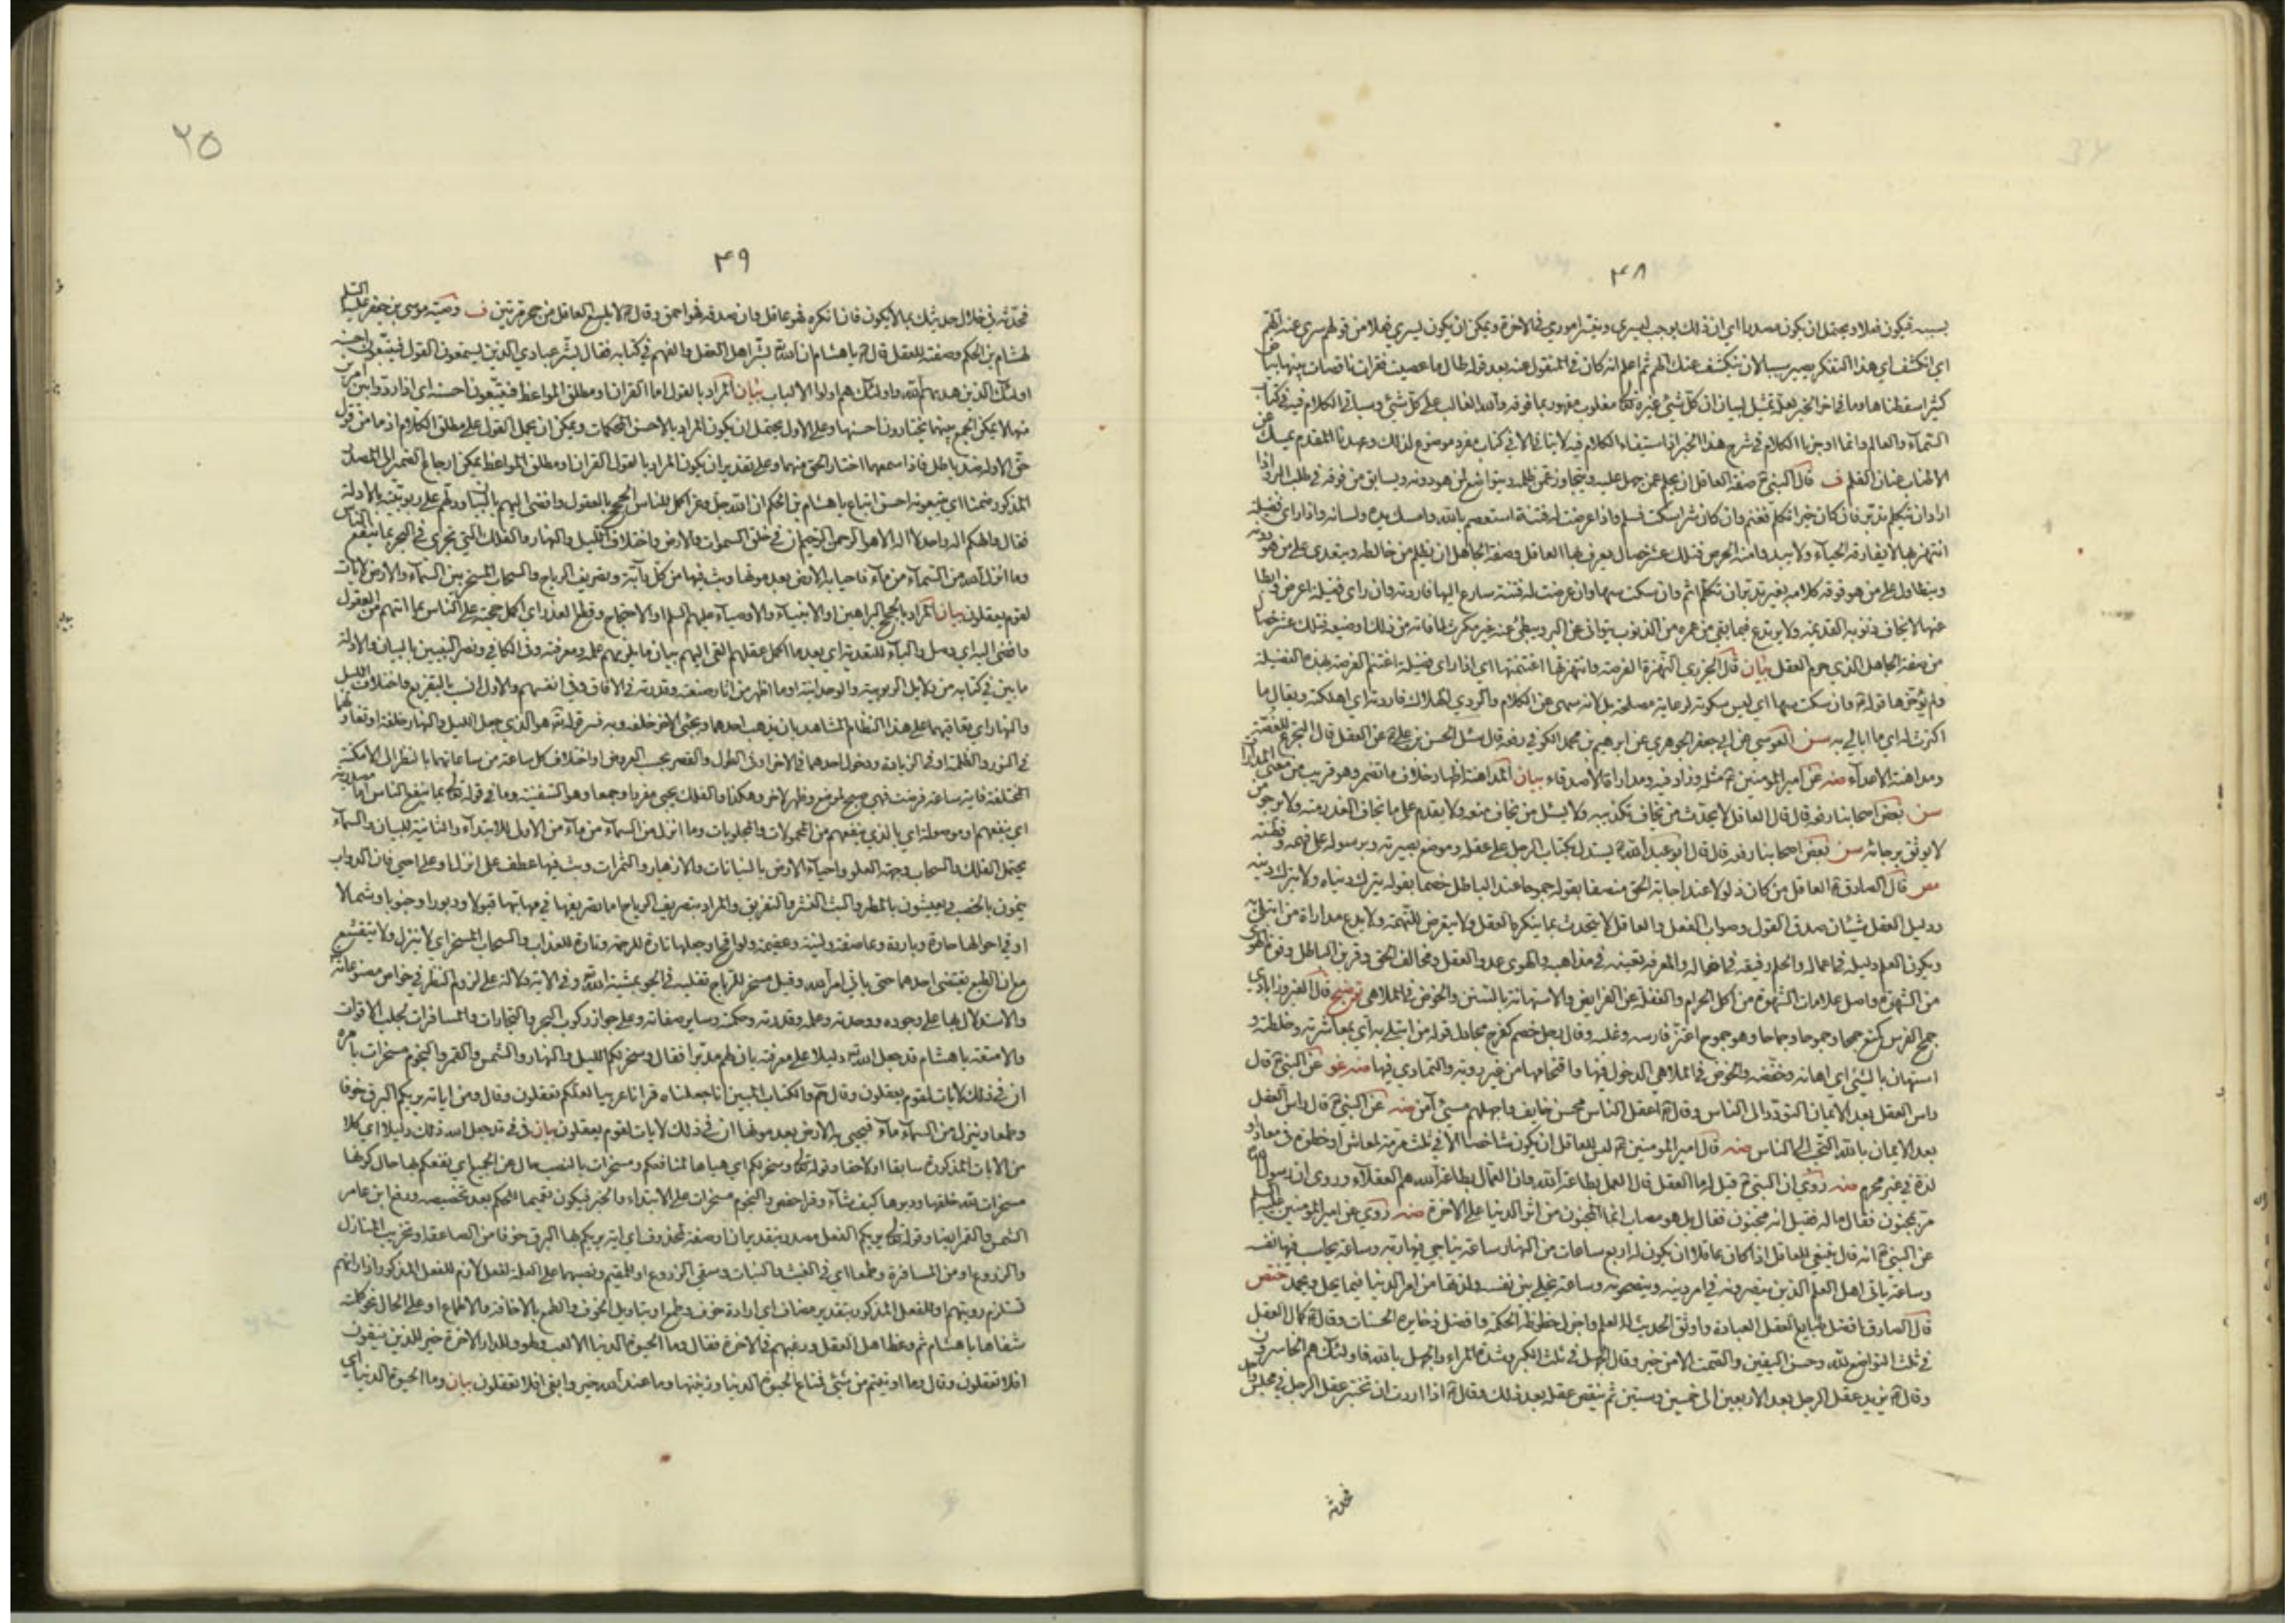 ٤٨
بسببه فيكون فعلا ويحتمل ان يكون مصدرا اي ان ذلك يوجب ليسري وتيسر اموري في الاخرة ويمكن ان يكون يسري فعلا من قولهم سري عنه الهم
اي انكشف اي هذا التفكر يصير سببا لان ينكشف عنك الهم ثم اعلم انه كان في المنقول عنه بعد قوله طال ما عصيت فقرات ناقصات
كثيرا سقطناها وما في اخر الخبر تمثيل لبيان ان كل شيء غيره تعالى مغلوب مقهور بما فوقه والله الغالب على كل شيء وسياتي الكلام فيه في كتاب
السماء والعالم وانما اوجزنا الكلام في شرح هذا الخبر لان استيفاء الكلام فيه لا يتاتى الا في كتاب مفرد موضوع لذلك
الاطناب عنان القلم ف قال النبي ص صفة العاقل ان يحلم عمن جهل عليه ويتجاوز عمن ظلمه ويتواضع لمن هو دونه ويسابق من فوقه في طلب البر واذا
اراد ان يتكلم تدبر فان كان خيرا تكلم فغنم وان كان شرا سكت فسلم واذا عرضت له فتنة استعصم بالله وامسك يده ولسانه واذا راى فضيلة
انتهز بها لا يفارقه الحياء ولا يبدو منه الحرص فتلك عشر خصال يعرف بها العاقل وصفة الجاهل ان يظلم من خالطه ويتعدى على من هو دونه
ويتطاول على من هو فوقه كلامه بغير تدبر ان تكلم اثم وان سكت سها وان عرضت له فتنة سارع اليها فاردته وان راى فضيلة اعرض وابطا
عنها لا يخاف ذنوبه القديمة ولا يرتدع فيما بقي من عمره من الذنوب يتوانى عن البر ويبطئ عنه غير مكترث لما فاته من ذلك او ضيعه فتلك عشر خصال
من صفة الجاهل الذي حرم العقل بيان قال الجزري النهزة الفرصة وانتهزتها اغتنمتها اي اذا راى فضيلة اغتنم الفرصة بهذه الفضيلة
ولم يؤخرها قوله ص وان سكت سها اي ليس سكوته لرعاية مصلحة بل لانه سهى عن الكلام والردي الهلاك فاردته اي اهلكته ويقال ما
اكترث له اي ما ابالي به سن العوسي عن ابي جعفر الجوهري عن ابرهيم بن محمد الكوفي رفعه قال سئل الحسن بن علي ع عن العقل قال التجرع للغصة
ومداهنة الاعداء منه عن امير المؤمنين ع مثله وزاد فيه ومداراة الاصدقاء بيان المداهنة اظهار خلاف ما تضمر وهو قريب من معنى المداراة
سن بعض اصحابنا رفعه قال قال العاقل لا يحدث من يخاف تكذيبه ولا يسئل من يخاف منعه ولا يقدم على ما يخاف العذر منه ولا يرجو من
لا يوثق برجائه سن بعض اصحابنا رفعه قال قال ابو عبد الله ع يستدل بكتاب الرجل على عقله وموضع بصيرته وبرسوله على فهمه وفطنته
مص قال الصادق ع العاقل من كان ذلولا عند اجابة الحق منصفا بقوله جموحا عند الباطل خصما بقوله يترك دنياه ولا يترك دينه
ودليل العقل شيئان صدق القول وصواب الفعل والعاقل لا يتحدث بما ينكره العقل ولا يتعرض للتهمة ولا يدع مداراة من ابتلي به
ويكون العلم دليله في اعماله والحلم رفيقه في احواله والمعرفة يقينه في مذاهبه والهوى عدو العقل ومخالف الحق وقرين الباطل وقوة الهوى
من الشهوة واصل علامات الشهوة من اكل الحرام والغفلة عن الفرايض والاستهانة بالسنن والخوض في الملاهي توضيح قال الفيروزابادي
جمح الفرس كمنع جمحا وجموحا وجماحا وهو جموح اعتز فارسه وغلبه وقال رجل خصم كفرح مجادل قوله من ابتلي به اي بمعاشرته وخلطته و
استهان بالشيء اي اهانه وخففه والخوض في الملاهي الدخول فيها واقتحامها من غير روية والتمادي فيها منه غو عن النبي ص قال
راس العقل بعد الايمان التودد الى الناس وقال ص اعقل الناس محسن خايف واجهلهم مسيئ آمن منه عن النبي ص قال راس العقل
بعد الايمان بالله التحبب الى الناس منه قال امير المؤمنين ع ليس للعاقل ان يكون شاخصا الا في ثلث مرمة لمعاش او خطوة في معاد او
لذة في غير محرم منه روي ان النبي ص قيل له ما العقل قال العمل بطاعة الله وان العمال بطاعة الله هم العقلاء وروى ان رسول الله ص
مر بمجنون فقال ما له فقيل انه مجنون فقال بل هو مصاب انما المجنون من اثر الدنيا على الاخرة منه روى عن امير المؤمنين عليه السلم
عن النبي ص انه قال ينبغي للعاقل اذا كان عاقلا ان يكون له اربع ساعات من النهار ساعة يناجي فيها ربه وساعة يحاسب فيها نفسه
وساعة ياتي اهل العلم الذين ينصرونه في امر دينه وينصحونه وساعة يخلي بين نفسه ولذتها من امر الدنيا فيما يحل ويحمد ختص
قال الصادق ع افضل طبايع العقل العبادة واوثق الحديث له العلم واجزل حظوظه الحكمة وافضل ذخايره الحسنات وقال ع كمال العقل
في ثلث التواضع لله وحسن اليقين والصمت الا من خير وقال الجهل في ثلث الكبر وشدة المراء والجهل بالله فاولئك هم الخاسرون
وقال ع يزيد عقل الرجل بعد الاربعين الى خمسين وستين ثم ينقص عقله بعد ذلك وقال ع اذا اردت ان تختبر عقل الرجل في مجلس واحد
فحدثه
٢٥
٤٩
فحدثه في خلال حديثك بما لا يكون فان انكره فهو عاقل وان صدقه فهو احمق وقال ع لا يلسع العاقل من جحر مرتين ف وصية موسى بن جعفر عليه السلم
لهشام بن الحكم وصفته للعقل قال ع يا هشام ان الله تع بشر اهل العقل والفهم في كتابه فقال فبشر عبادي الذين يستمعون القول فيتبعون احسنه
اولئك الذين هديهم الله واولئك هم اولوا الالباب بيان المراد بالقول اما القران او مطلق المواعظ فيتبعون احسنه اي اذا رددوا بين امرين
منهما لا يمكن الجمع بينهما يختارون احسنهما وعلى الاول يحتمل ان يكون المراد بالاحسن المحكمات ويمكن ان يحمل القول على مطلق الكلام اذ ما من قول
حق الا وله ضد باطل فاذا سمعهما اختار الحق منهما وعلى تقدير ان يكون المراد بالقول القران او مطلق المواعظ يمكن ارجاع الضمير الى المصدر
المذكور ضمنا اي يتبعونه احسن اتباع يا هشام بن الحكم ان الله جل وعز اكمل للناس الحجج بالعقول وافضى اليهم بالبيان ودلهم على ربوبيته بالادلة
فقال والهكم اله واحد لا اله الا هو الرحمن الرحيم ان في خلق السموات والارض واختلاف الليل والنهار والفلك التي تجري في البحر بما ينفع الناس
وما انزل الله من السماء من ماء فاحيا به الارض بعد موتها وبث فيها من كل دآبة وتصريف الرياح والسحاب المسخر بين السماء والارض لايات
لقوم يعقلون بيان المراد بالحجج البراهين او الانبياء والاوصياء عليهم السلم او الاحتجاج وقطع العذر اي اكمل حجته على الناس بما اتاهم من العقول
وافضى اليه اي وصل والباء للتعدية اي بعد ما اكمل عقلهم القى اليهم بيان ما يلزمهم علمه ومعرفته وفي الكافي ونصر النبيين بالبيان والادلة
ما بين في كتابه من دلايل الربوبية والوحدانية او ما اظهر من اثار صنعته وقدرته في الافاق وفي انفسهم والاول انسب بالتفريع واختلاف الليل
والنهار اي تعاقبهما على هذا النظام المشاهد بان يذهب احدهما ويجيئ الاخر خلفه وبه فسر قوله تع هو الذي جعل الليل والنهار خلفة او تفاوتهما
في النور والظلمة او في الزيادة ودخول احدهما في الاخر او في الطول والقصر بحسب العروض او اختلاف كل ساعة من ساعاتهما بالنظر الى الامكنة
المختلفة فاية ساعة فرضت فهي صبح لموضع وظهر لاخر وهكذا والفلك يجيئ مفردا وجمعا وهو السفينة وما في قوله تعالى بما ينفع الناس اما مصدرية
اي بنفعهم او موصولة اي بالذي ينفعهم من المحمولات والمجلوبات وما انزل من السماء من ماء من الاولى للابتداء والثانية للبيان والسماء
يحتمل الفلك والسحاب وجهة العلو واحياء الارض بالنباتات والازهار والثمرات وبث فيها عطف على انزل او على احيى فان الدواب
ينمون بالخصب ويعيشون بالمطر والبث النشر والتفريق والمراد بتصريف الرياح اما تصريفها في مهابها قبولا ودبورا وجنوبا وشمالا
او في احوالها حارة وباردة وعاصفة ولينة وعقيمة ولواقح او جعلها تارة للرحمة وتارة للعذاب والسحاب المسخر اي لا ينزل ولا يتقشع
مع ان الطبع يقتضي احدهما حتى ياتي امر الله وقيل مسخر للرياح تقلبه في الجو بمشية الله تع وفي الاية دلالة على لزوم النظر في خواص مصنوعاته
والاستدلال بها على وجوده ووحدته وعلمه وقدرته وحكمته وساير صفاته وعلى جواز ركوب البحر والتجارات والمسافرات لجلب الاقوات
والامتعة يا هشام قد جعل الله تع دليلا على معرفته بان لهم مدبرا فقال وسخر لكم الليل والنهار والشمس والقمر والنجوم مسخرات بامره
ان في ذلك لايات لقوم يعقلون وقال حم والكتاب المبين انا جعلناه قرانا عربيا لعلكم تعقلون وقال ومن اياته يريكم البرق خوفا
وطمعا وينزل من السماء ماء فيحيي به الارض بعد موتها ان في ذلك لايات لقوم يعقلون بيان في في قد جعل الله ذلك دليلا اي كلا
من الايات المذكورة سابقا او لاحقا وقوله تعالى وسخر لكم اي هياها لمنافعكم ومسخرات بالنصب حال عن الجميع اي نفعكم بها حال كونها
مسخرات لله خلقها ودبرها كيف شاء وقرا حفص والنجوم مسخرات على الابتداء والخبر فيكون تعميما للحكم بعد تخصيصه ورفع ابن عامر
الشمس والقمر ايضا وقوله تعالى يريكم الفعل مصدر بتقدير ان او صفة لمحذوف اي اية يريكم بها البرق خوفا من الصاعقة او تخريب المنازل
والزروع او من المسافرة وطمعا اي في الغيث والنبات وسقي الزروع او للمقيم ونصبهما على العلة لفعل لازم للفعل المذكور اذ اراءتهم
تستلزم رويتهم او للفعل المذكور بتقدير مضاف اي ارادة خوف وطمع او بتاويل الخوف والطمع بالاخافة والاطماع او على الحال نحو كلمته
شفاها يا هشام ثم وعظ اهل العقل ورغبهم في الاخرة فقال وما الحيوة الدنيا الا لعب ولهو وللدار الاخرة خير للذين يتقون
افلا تعقلون وقال وما اوتيتم من شيئ فمتاع الحيوة الدنيا وزينتها وما عند الله خير وابقى افلا تعقلون بيان وما الحيوة الدنيا اي